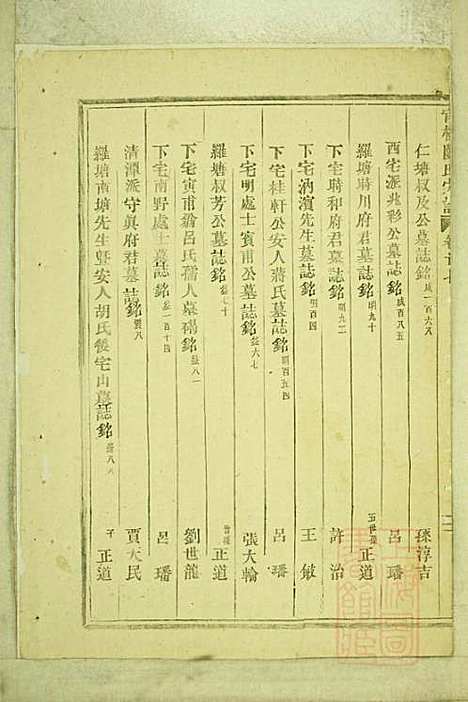 仁塘叔及公墓誌銘 咸一百六八 孫淳吉
西宅派兆彩公墓誌銘 咸百八五 呂璠
羅塘時川府君墓誌銘 明九十 五世孫 正道
下宅時和府君墓誌銘 明九二 許治
下宅汭濱先生墓誌銘 明百四 王敏
下宅桂軒公安人蔣氏墓誌銘 明百五四 呂璠
下宅明處士賓甫公墓誌銘 益六七 張大輪
羅塘叔芳公墓誌銘 益七十 曾孫 正道
下宅寅甫翁呂氏孺人墓碣 益八一 劉世龍
下宅南野處士墓誌銘 益一百十四 呂璠
清潭派守眞府君墓誌銘 賢八 賈大民
羅塘南塘先生曁安人胡氏餐宅山墓誌銘 子 正道